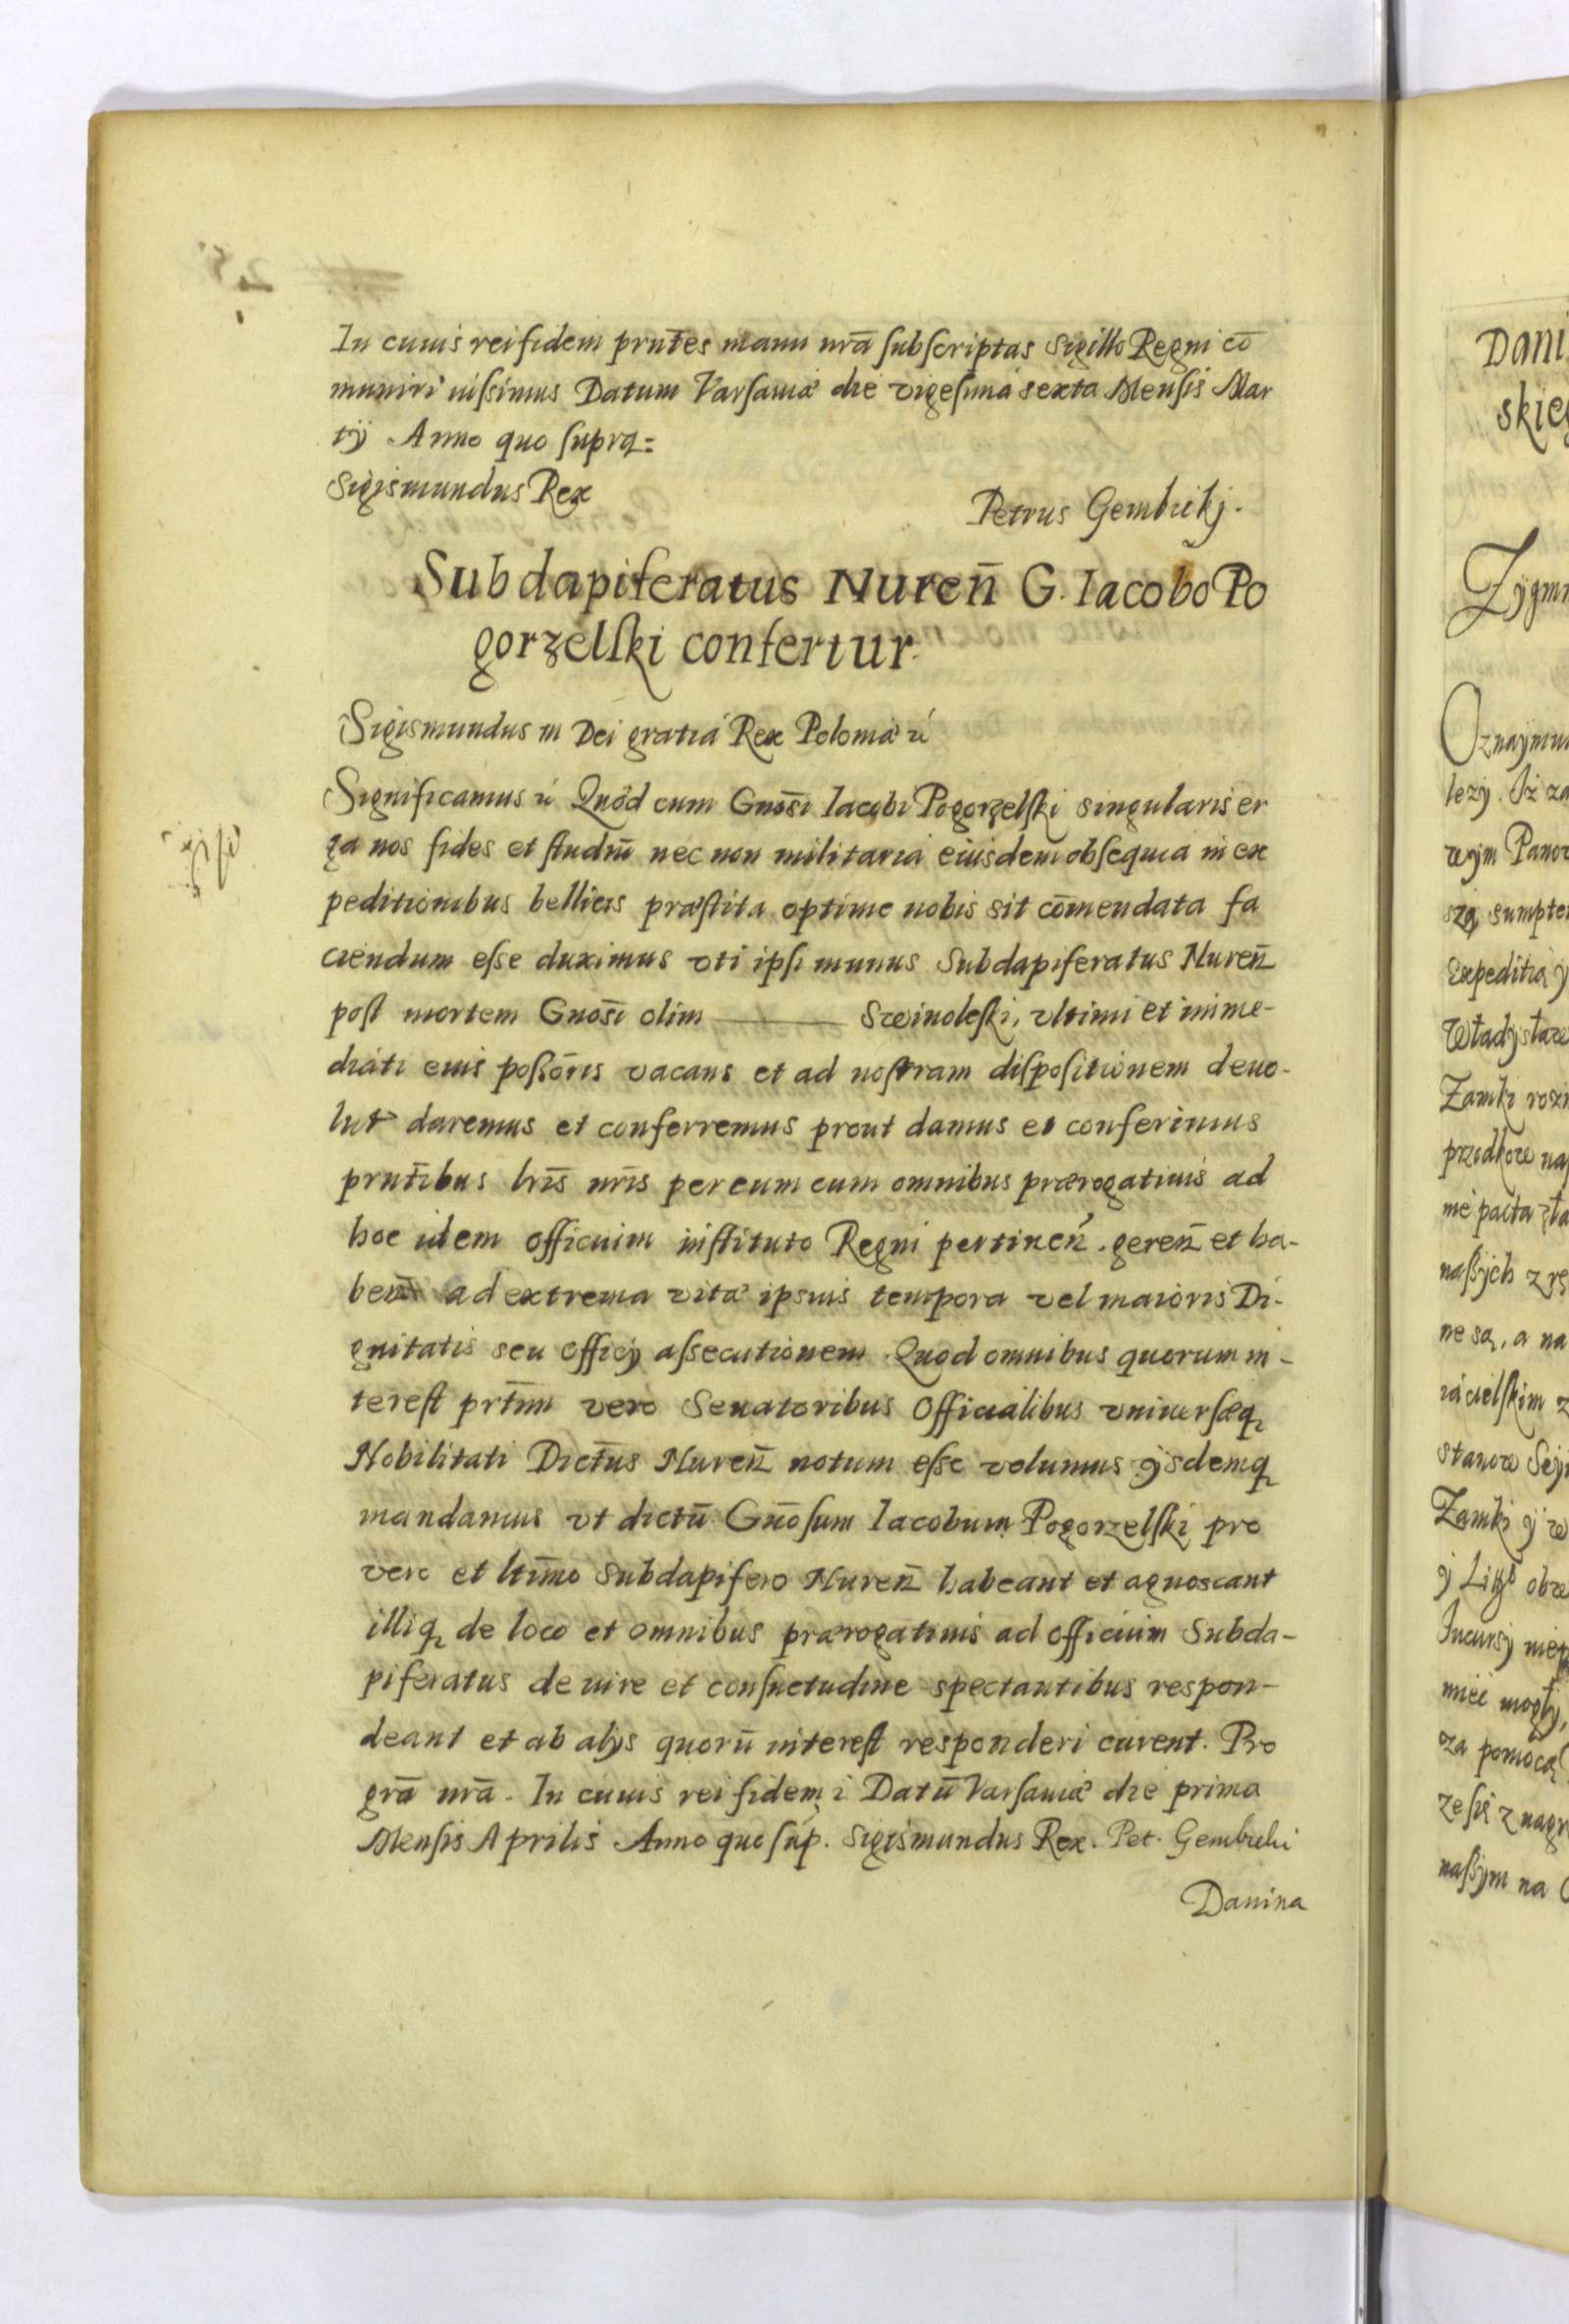 In cuius rei fidem prñtes manu nrã subscriptas Sigillo Regni cõ
muniri iussimus Datum Varsaviæ die vigesima sexta Mensis Mar
tij Anno quo supra:
Sigismundus Rex
Petrus Gembickj.
Subdapiferatus Nureñ G. Iacobo Po
gorzelski confertur.
Sigismundus III Dei gratiá Rex Poloniæ
Significamus Quòd cum Gnõsi Iacobi Pogorzelski singularis er
ga nos fides et studiũ nec non militaria eiusdem obsequia in ex
peditionibus bellicis præstita optime nobis sit cõmendata fa
ciendum esse duximus vti ipsi munus Subdapiferatus Nureñ
post mortem Gnosĩ olim ——— Swinoleski, vltimi et imme-
diati eius poßõris vacans et ad nostram dispositionem devo-
lut daremus et conferremus prout damus et conferimus
prñtibus lris nris per eum cum omnibus prærogativis ad
hoc idem officium instituto Regni pertineñ. gereñ et ha-
beñ ad extrema vitæ ipsius tempora vel maioris Di-
gnitatis seu officij assecutionem. Quod omnibus quorum in-
terest prtim vero Senatoribus Officialibus vniversæq
Nobilitati Dictus Nureñ notum esse volumus ijsdemq
mandamus vt dictũ Gñosum Iacobum Pogorzelski pro
vero et ltimo Subdapifero Nureñ habeant et agnoscant
illiq de loco et omnibus prærogativis ad officium Subda-
piferatus de iure et consuetudine spectantibus respon-
deant et ab alijs quorũ interest responderi curent. Pro
grã nrã. In cuius rei fidem Datũ Varsaviæ die prima
Mensis Aprilis Anno quo sup. Sigismundus Rex. Pet. Gembicki
Danina
Dani
skieg
Zygm
Oznaymu
leży. Iż za
wym Panow
szą sumpte
Expeditią y
Władysław
Zamki rozn
przodkow na
mé pacta zła
naßych z rę
ne są, a na
iácielskim z
stanow Sey
Zamki y w
y
Incursy niep
mieć mogły,
za pomocą
ze się z nag
naßym na